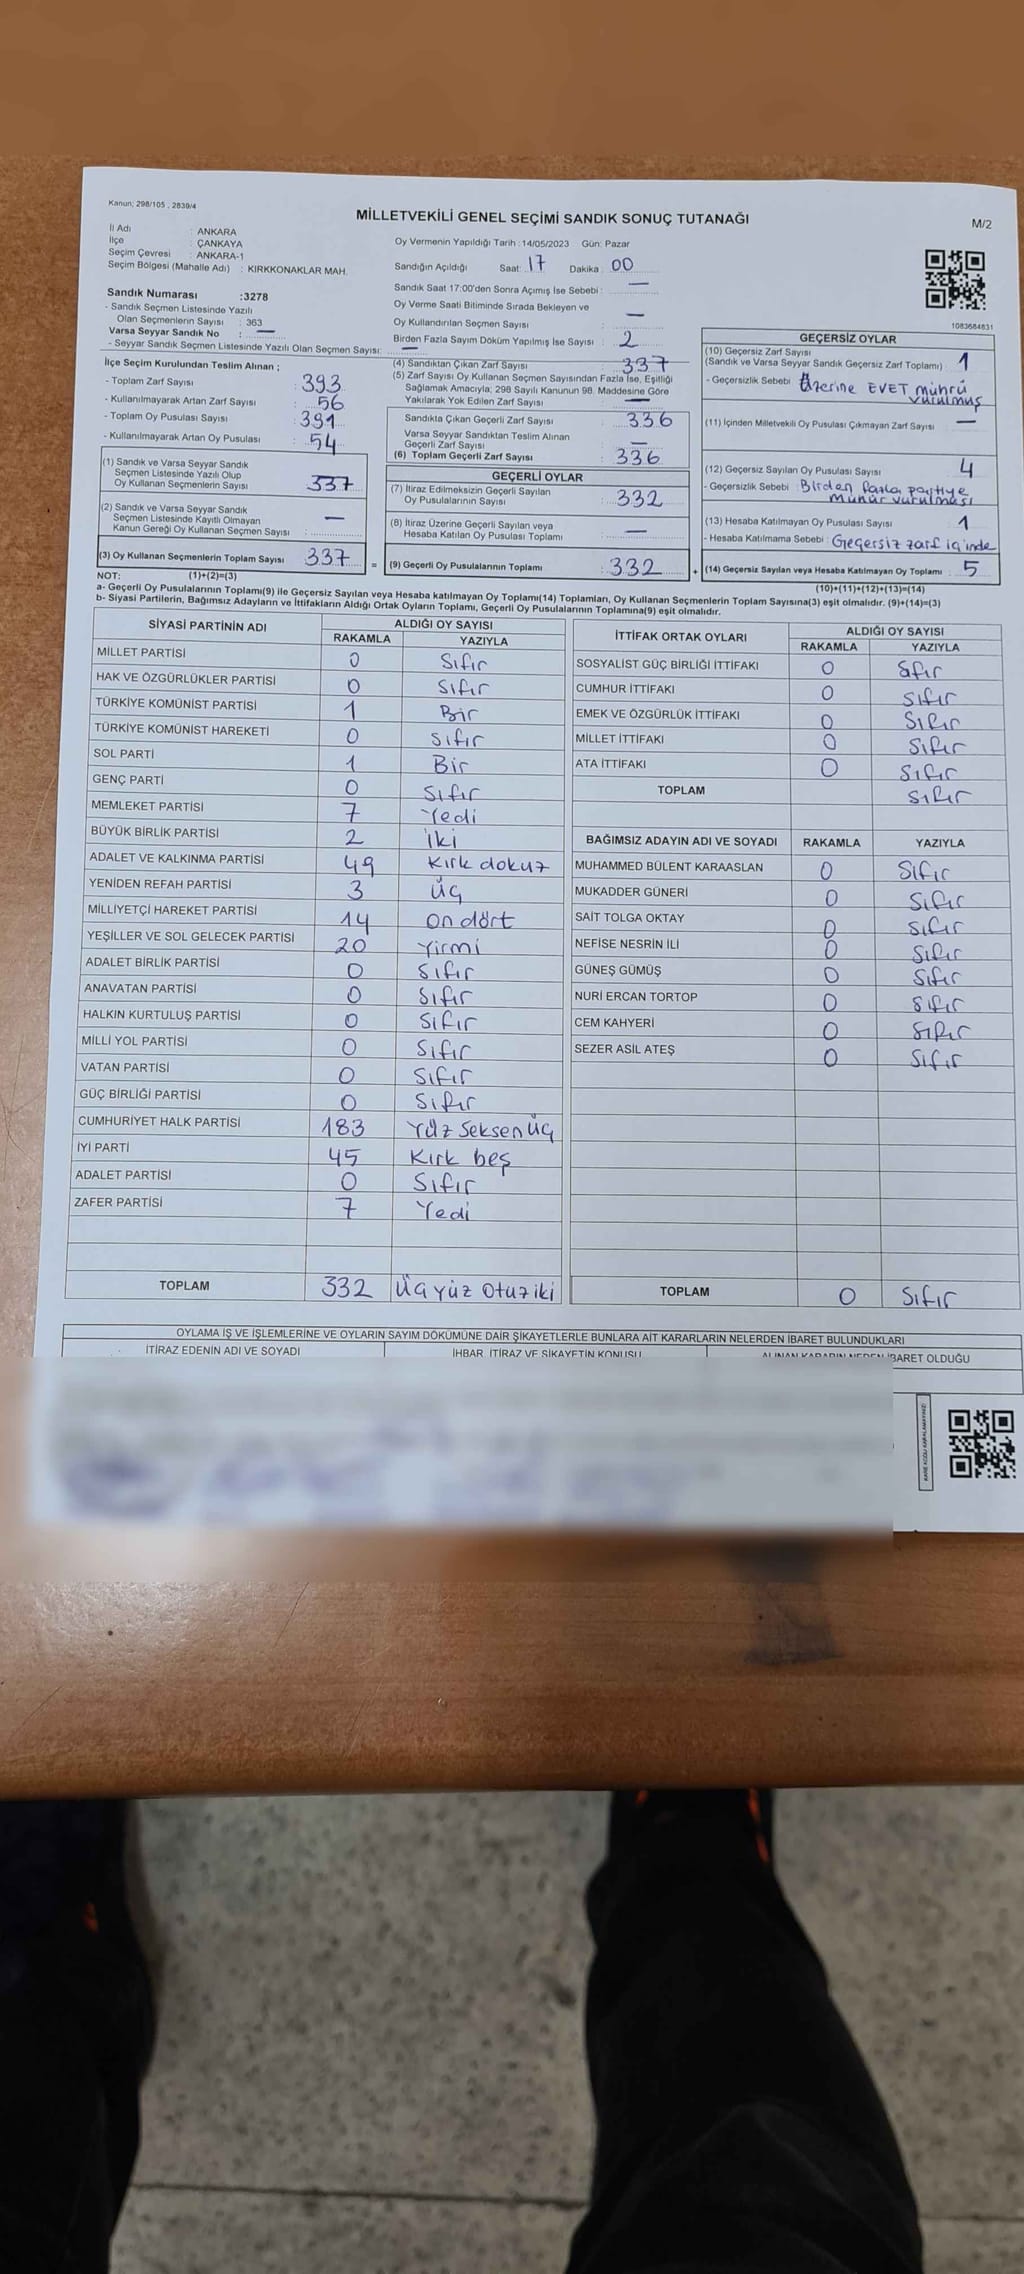 Kanun; 298/105 , 2839/4
MİLLETVEKİLİ GENEL SEÇİMİ SANDIK SONUÇ TUTANAĞI
M/2
İl Adı : ANKARA
İlçe : ÇANKAYA
Seçim Çevresi : ANKARA-1
Seçim Bölgesi (Mahalle Adı) : KIRKKONAKLAR MAH.
Oy Vermenin Yapıldığı Tarih : 14/05/2023 Gün: Pazar
Sandığın Açıldığı Saat: 17 Dakika : 00
Sandık Saat 17:00'den Sonra Açımış İse Sebebi : —
Oy Verme Saati Bitiminde Sırada Bekleyen ve
Oy Kullandırılan Seçmen Sayısı : —
Birden Fazla Sayım Döküm Yapılmış İse Sayısı : 2
1083684831
Sandık Numarası :3278
- Sandık Seçmen Listesinde Yazılı
Olan Seçmenlerin Sayısı : 363
Varsa Seyyar Sandık No : —
- Seyyar Sandık Seçmen Listesinde Yazılı Olan Seçmen Sayısı: —
İlçe Seçim Kurulundan Teslim Alınan ;
- Toplam Zarf Sayısı : 393
- Kullanılmayarak Artan Zarf Sayısı : 56
- Toplam Oy Pusulası Sayısı : 391
- Kullanılmayarak Artan Oy Pusulası : 54
(1) Sandık ve Varsa Seyyar Sandık
Seçmen Listesinde Yazılı Olup
Oy Kullanan Seçmenlerin Sayısı : 337
(2) Sandık ve Varsa Seyyar Sandık
Seçmen Listesinde Kayıtlı Olmayan
Kanun Gereği Oy Kullanan Seçmen Sayısı : —
(3) Oy Kullanan Seçmenlerin Toplam Sayısı : 337
(4) Sandıktan Çıkan Zarf Sayısı : 337
(5) Zarf Sayısı Oy Kullanan Seçmen Sayısından Fazla İse, Eşitliği
Sağlamak Amacıyla; 298 Sayılı Kanunun 98. Maddesine Göre
Yakılarak Yok Edilen Zarf Sayısı : —
Sandıkta Çıkan Geçerli Zarf Sayısı : 336
Varsa Seyyar Sandıktan Teslim Alınan
Geçerli Zarf Sayısı : —
(6) Toplam Geçerli Zarf Sayısı : 336
GEÇERLİ OYLAR
(7) İtiraz Edilmeksizin Geçerli Sayılan
Oy Pusulalarının Sayısı : 332
(8) İtiraz Üzerine Geçerli Sayılan veya
Hesaba Katılan Oy Pusulası Toplamı : —
= (9) Geçerli Oy Pusulalarının Toplamı : 332
GEÇERSİZ OYLAR
(10) Geçersiz Zarf Sayısı
(Sandık ve Varsa Seyyar Sandık Geçersiz Zarf Toplamı) : 1
- Geçersizlik Sebebi : Üzerine EVET mührü
vurulmuş
(11) İçinden Milletvekili Oy Pusulası Çıkmayan Zarf Sayısı : —
(12) Geçersiz Sayılan Oy Pusulası Sayısı : 4
- Geçersizlik Sebebi : Birden fazla partiye
mühür vurulması
(13) Hesaba Katılmayan Oy Pusulası Sayısı : 1
- Hesaba Katılmama Sebebi : Geçersiz zarf içinde
+ (14) Geçersiz Sayılan veya Hesaba Katılmayan Oy Toplamı : 5
NOT: (1)+(2)=(3)
(10)+(11)+(12)+(13)=(14)
a- Geçerli Oy Pusulalarının Toplamı(9) ile Geçersiz Sayılan veya Hesaba katılmayan Oy Toplamı(14) Toplamları, Oy Kullanan Seçmenlerin Toplam Sayısına(3) eşit olmalıdır. (9)+(14)=(3)
b- Siyasi Partilerin, Bağımsız Adayların ve İttifakların Aldığı Ortak Oyların Toplamı, Geçerli Oy Pusulalarının Toplamına(9) eşit olmalıdır.
SİYASİ PARTİNİN ADI ALDIĞI OY SAYISI
RAKAMLA YAZIYLA
MİLLET PARTİSİ 0 Sıfır
HAK VE ÖZGÜRLÜKLER PARTİSİ 0 Sıfır
TÜRKİYE KOMÜNİST PARTİSİ 1 Bir
TÜRKİYE KOMÜNİST HAREKETİ 0 Sıfır
SOL PARTİ 1 Bir
GENÇ PARTİ 0 Sıfır
MEMLEKET PARTİSİ 7 Yedi
BÜYÜK BİRLİK PARTİSİ 2 İki
ADALET VE KALKINMA PARTİSİ 49 Kırk dokuz
YENİDEN REFAH PARTİSİ 3 Üç
MİLLİYETÇİ HAREKET PARTİSİ 14 On dört
YEŞİLLER VE SOL GELECEK PARTİSİ 20 Yirmi
ADALET BİRLİK PARTİSİ 0 Sıfır
ANAVATAN PARTİSİ 0 Sıfır
HALKIN KURTULUŞ PARTİSİ 0 Sıfır
MİLLİ YOL PARTİSİ 0 Sıfır
VATAN PARTİSİ 0 Sıfır
GÜÇ BİRLİĞİ PARTİSİ 0 Sıfır
CUMHURİYET HALK PARTİSİ 183 Yüz Seksen Üç
İYİ PARTİ 45 Kırk beş
ADALET PARTİSİ 0 Sıfır
ZAFER PARTİSİ 7 Yedi
TOPLAM 332 Üç yüz Otuz iki
İTTİFAK ORTAK OYLARI ALDIĞI OY SAYISI
RAKAMLA YAZIYLA
SOSYALİST GÜÇ BİRLİĞİ İTTİFAKI 0 Sıfır
CUMHUR İTTİFAKI 0 Sıfır
EMEK VE ÖZGÜRLÜK İTTİFAKI 0 Sıfır
MİLLET İTTİFAKI 0 Sıfır
ATA İTTİFAKI 0 Sıfır
TOPLAM Sıfır
BAĞIMSIZ ADAYIN ADI VE SOYADI RAKAMLA YAZIYLA
MUHAMMED BÜLENT KARAASLAN 0 Sıfır
MUKADDER GÜNERİ 0 Sıfır
SAİT TOLGA OKTAY 0 Sıfır
NEFİSE NESRİN İLİ 0 Sıfır
GÜNEŞ GÜMÜŞ 0 Sıfır
NURİ ERCAN TORTOP 0 Sıfır
CEM KAHYERİ 0 Sıfır
SEZER ASİL ATEŞ 0 Sıfır
TOPLAM 0 Sıfır
OYLAMA İŞ VE İŞLEMLERİNE VE OYLARIN SAYIM DÖKÜMÜNE DAİR ŞİKAYETLERLE BUNLARA AİT KARARLARIN NELERDEN İBARET BULUNDUKLARI
İTİRAZ EDENİN ADI VE SOYADI İHBAR, İTİRAZ VE ŞİKAYETİN KONUSU ALINAN KARARIN NEDEN İBARET OLDUĞU
KARE KODU KARALAMAYINIZ!